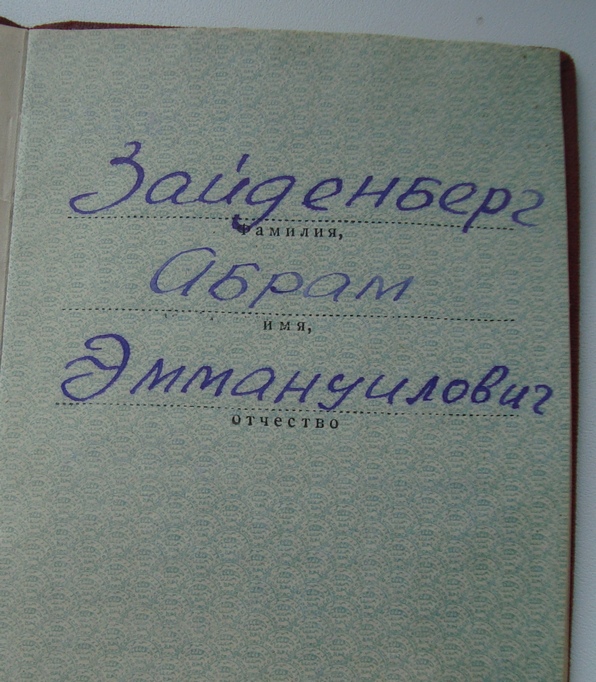 Зайденберг
фамилия,
Абрам
имя,
Эммануилович
отчество